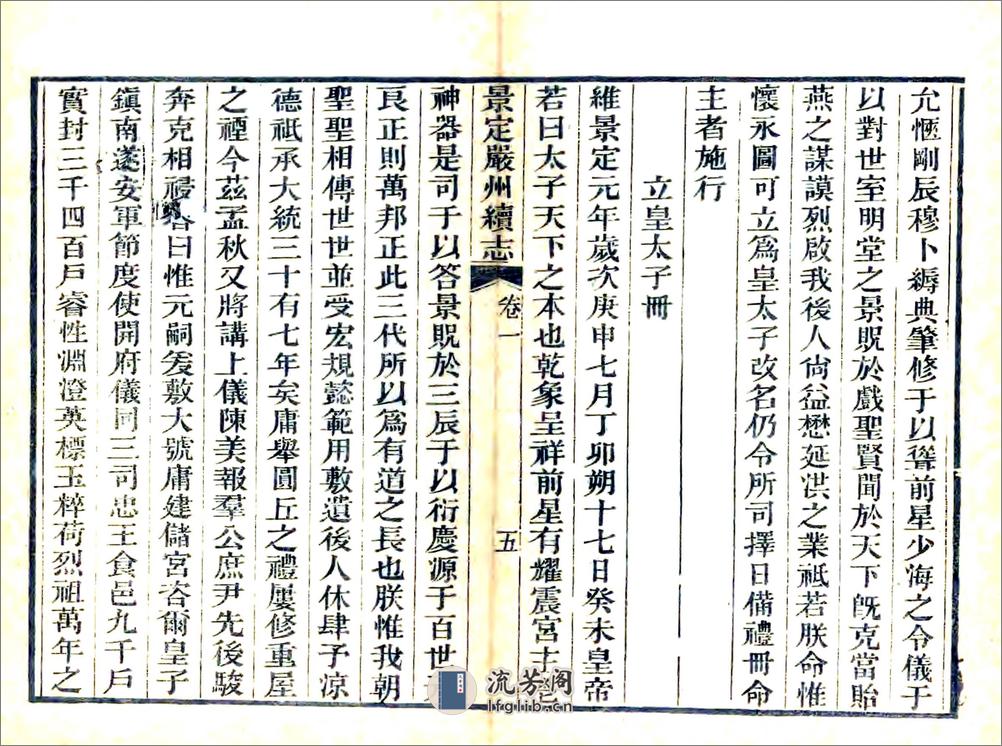 允愜剛辰穆卜縟典肇修于以聳前星少海之令儀于
以對世室明堂之景貺於戲聖賢聞於天下旣克當貽
燕之謀謨烈啟我後人尙益懋延洪之業祗若朕命惟
懷永圖可立爲皇太子改名仍令所司擇日備禮冊命
主者施行
立皇太子冊
維景定元年歲次庚申七月丁卯朔十七日癸未皇帝
若曰太子天下之本也乾象呈祥前星有耀震宮主
景定嚴州續志
卷一
五
神器是司于以答景貺於三辰于以衍慶源于百世
良正則萬邦正此三代所以爲有道之長也朕惟我朝
聖聖相傳世世並受宏規懿範用敷遺後人休肆予凉
德祗承大統三十有七年矣庸舉圓丘之禮屢修重屋
之禋今茲孟秋又將講上儀陳美報羣公庶尹先後駿
奔克相禋容曰惟元嗣爰敷大號庸建儲宮咨爾皇子
鎭南遂安軍節度使開府儀同三司忠王食邑九千戶
實封三千四百戶睿性淵澄英標玉粹荷烈祖萬年之
流芳阁
lfglib.cn